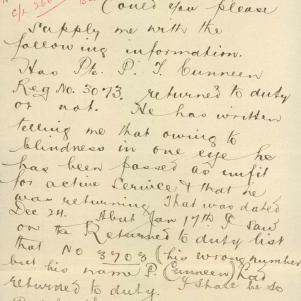 Could you please
supply me with the
following information.
Has Pte. P. J. Cunneen
Reg No. 3073. returned to duty
or not. He has written
telling me that owing to
blindness in one eye he
has been passed as unfit
for active service & that he
was returning. That was dated
Dec 24. About Jan 17th I saw
on the Returned to duty list
that No 3703 (his wrong number
but his name P. Cunneen) had
returned to duty. I shall be so